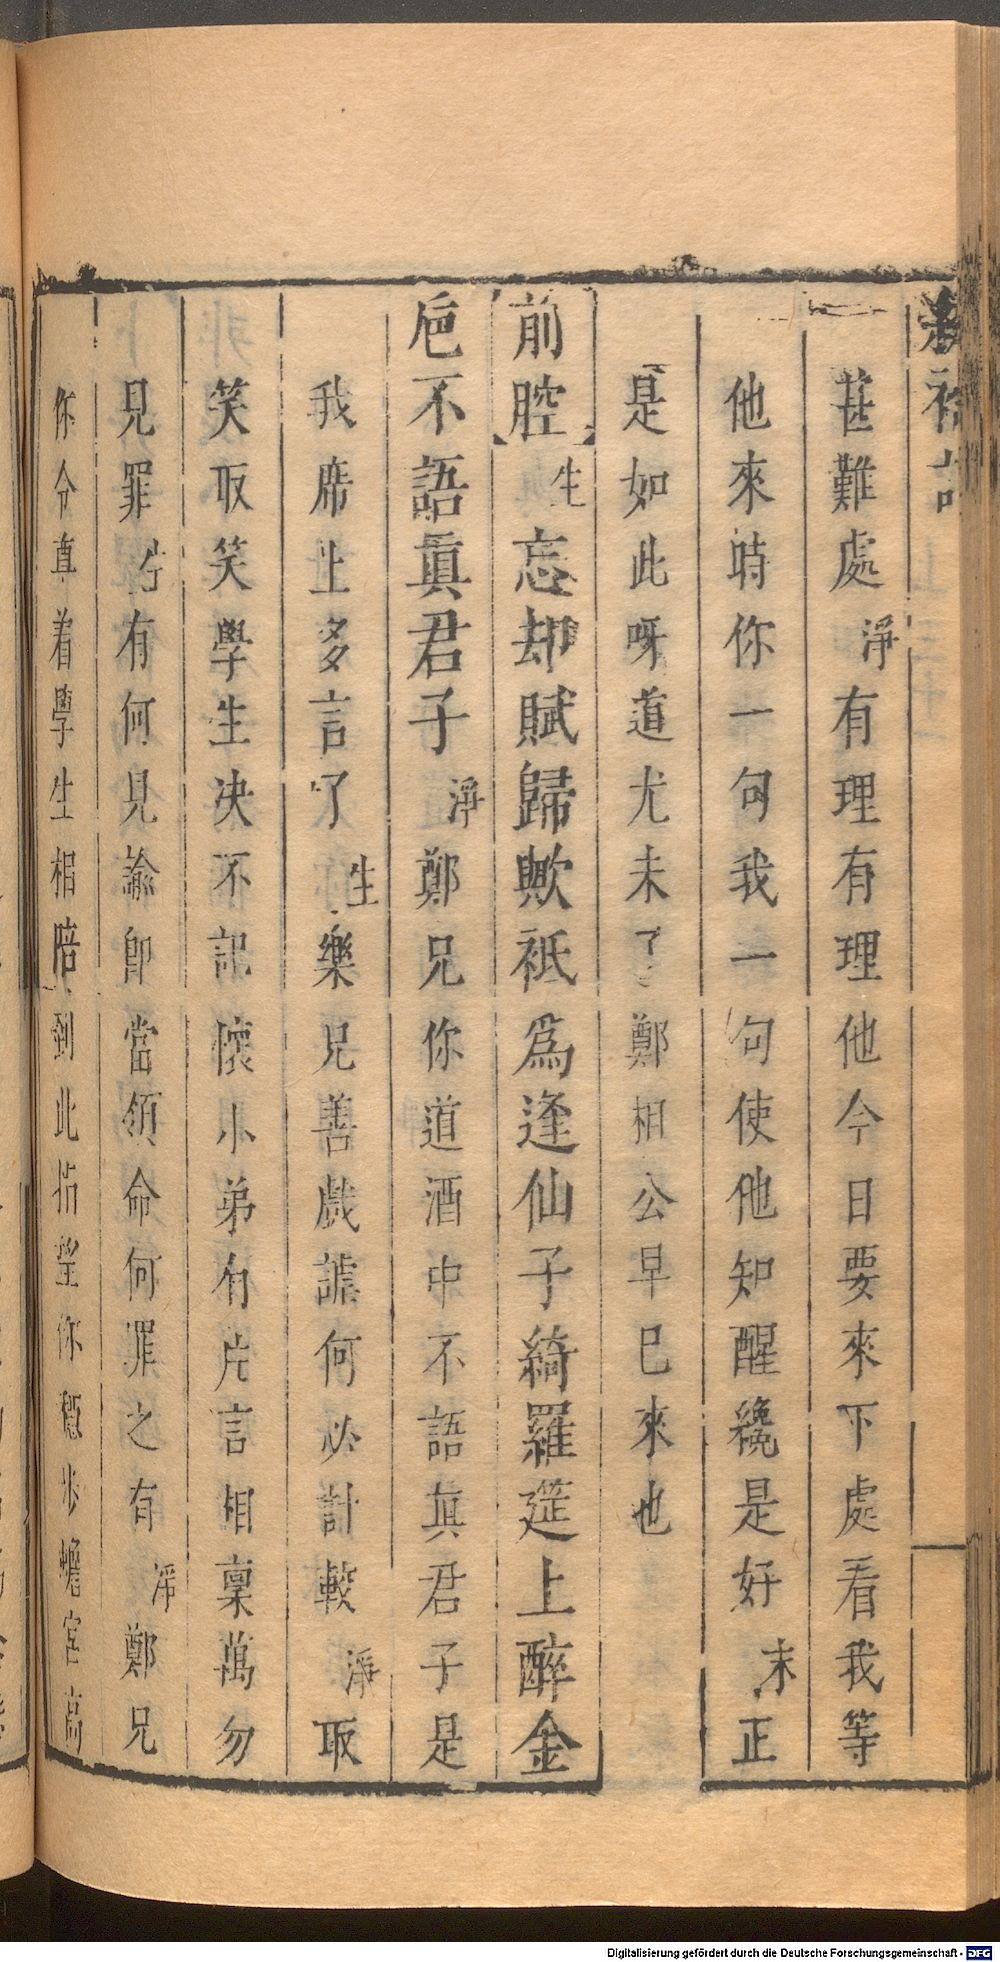 甚難處淨有理有理他今日要來下處看我等
他來時你一句我一句使他知醒纔是好末正
是如此呀道尤未了鄭相公早已來也
前腔生忘却賦歸歟祇爲逢仙子綺羅筵上醉金
巵不語眞君子淨鄭兄你道酒中不語眞君子是
我席上多言了生樂兄善戲謔何必計較淨取
笑取笑學生决不記懷小弟有片言相稟萬勿
見罪生有何見諭卽當領命何罪之有淨鄭兄
你令尊着學生相陪到此指望你穩步蟾宮高
Digitalisierung gefördert durch die Deutsche Forschungsgemeinschaft - DFG